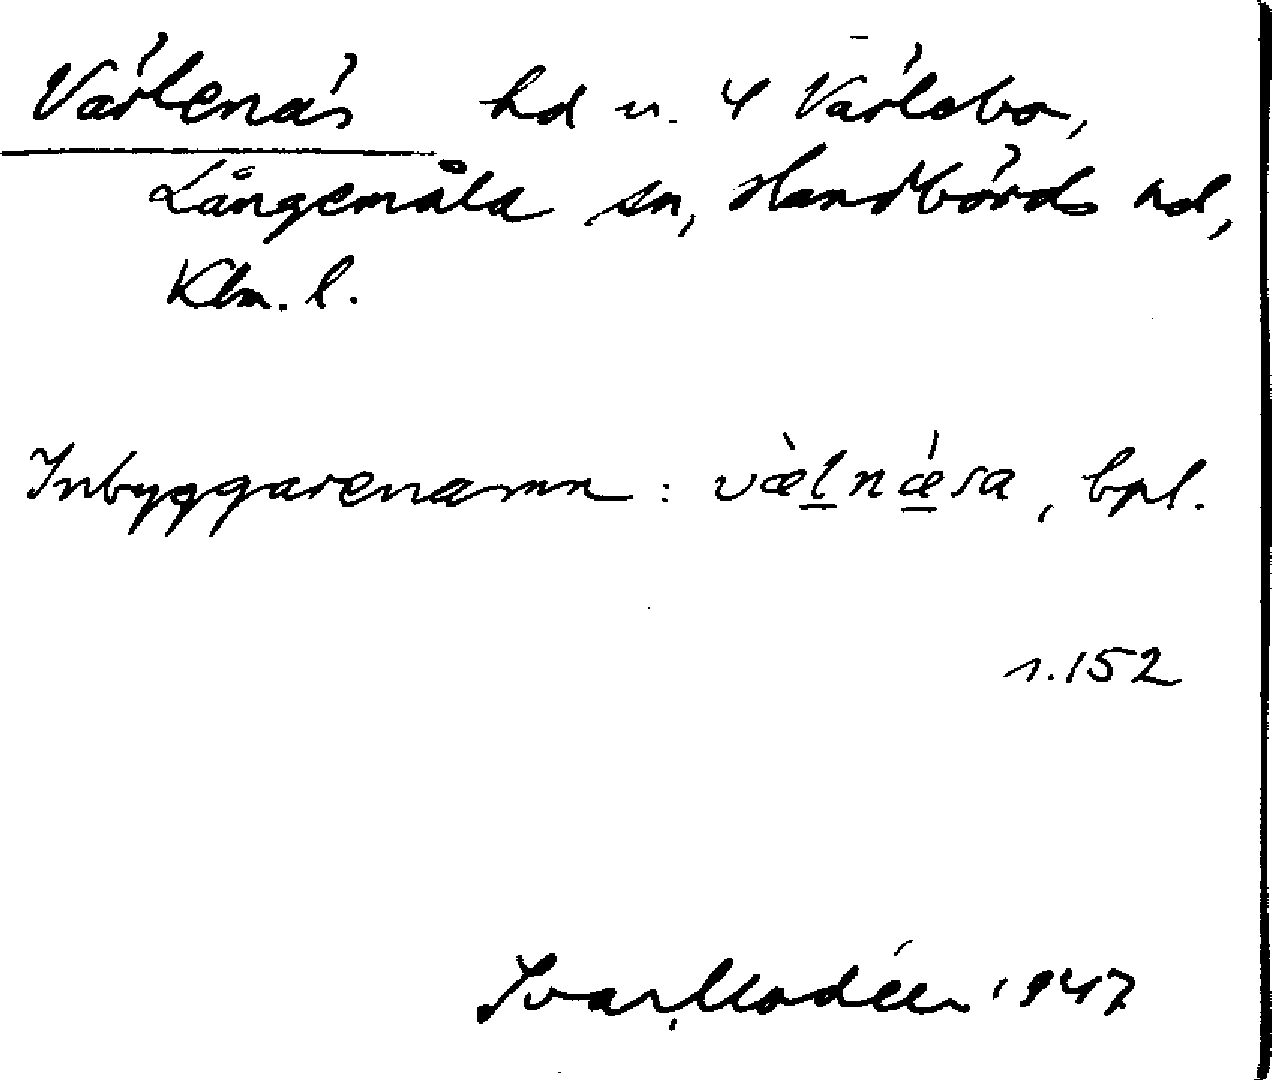 Värlenäs hd u. 4 Värlebo,
Långemåla sn, Handbörds hd,
Klm. l.
Inbyggarenamn: væ̀lnǽsa, bpl.
s. 152
Ivar Modéer 1947